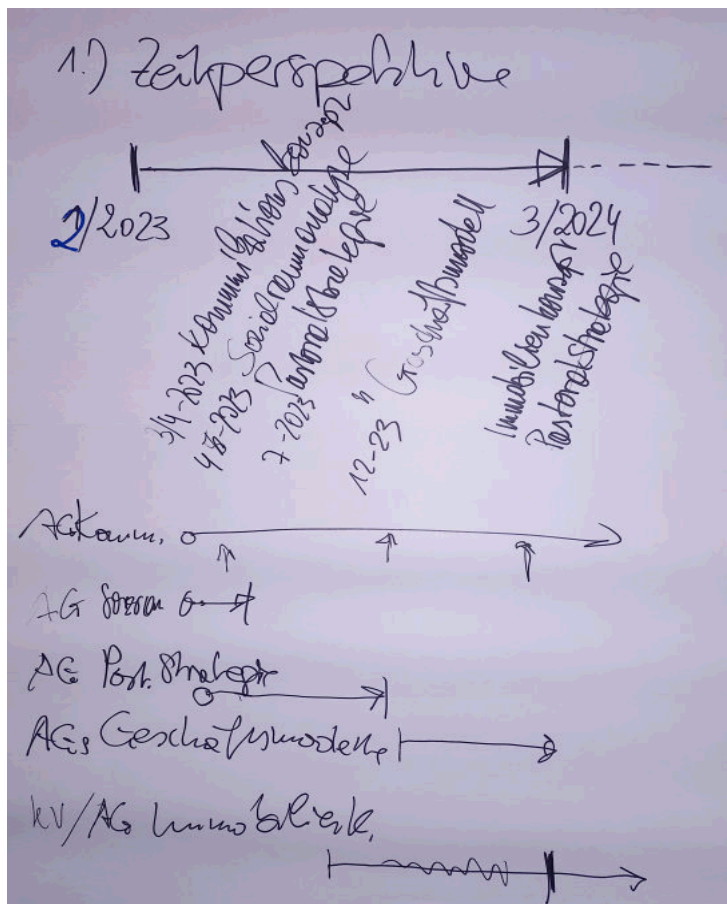 1.) Zeitperspektive
2/2023
3/2024
3/4-2023 Kommunikationskonzept
Sozialraumanalyse
7-2023 Pastoralstrategie
12-23 " Geschäftsmodell
Immobilienkonzept
Pastoralstrategie
AG Komm.
AG
AG Past. Strategie
AGs Geschäftsmodelle
KV/AG